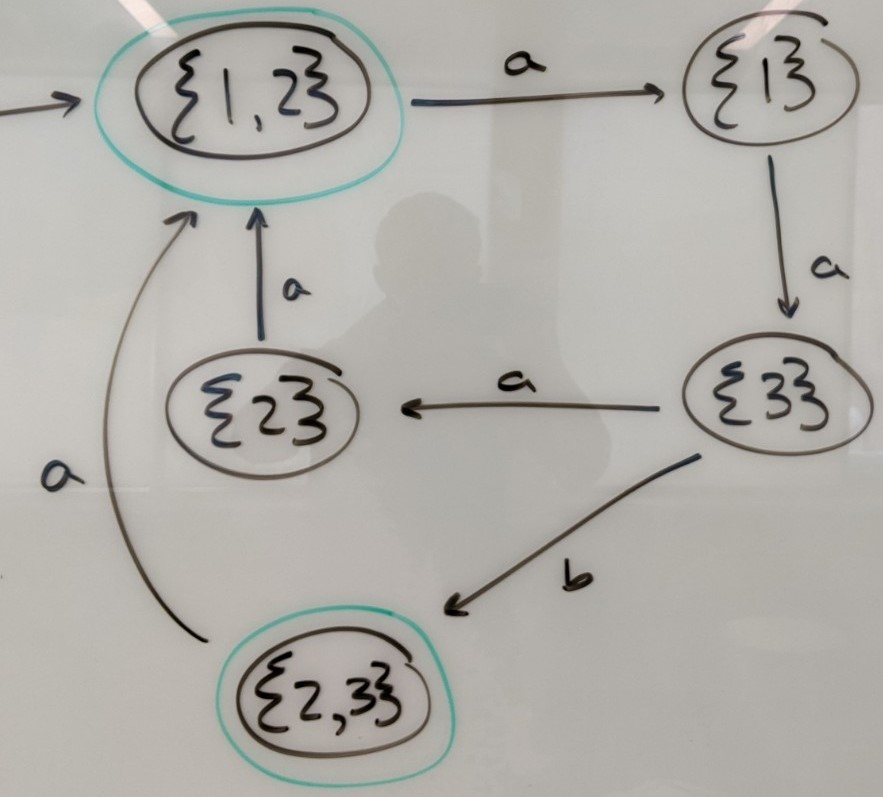 {1,2} a {1}
a a
{2} a {3}
a b
{2,3}